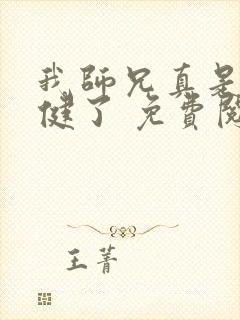 我師兄真是
健了 免費閱
王菁